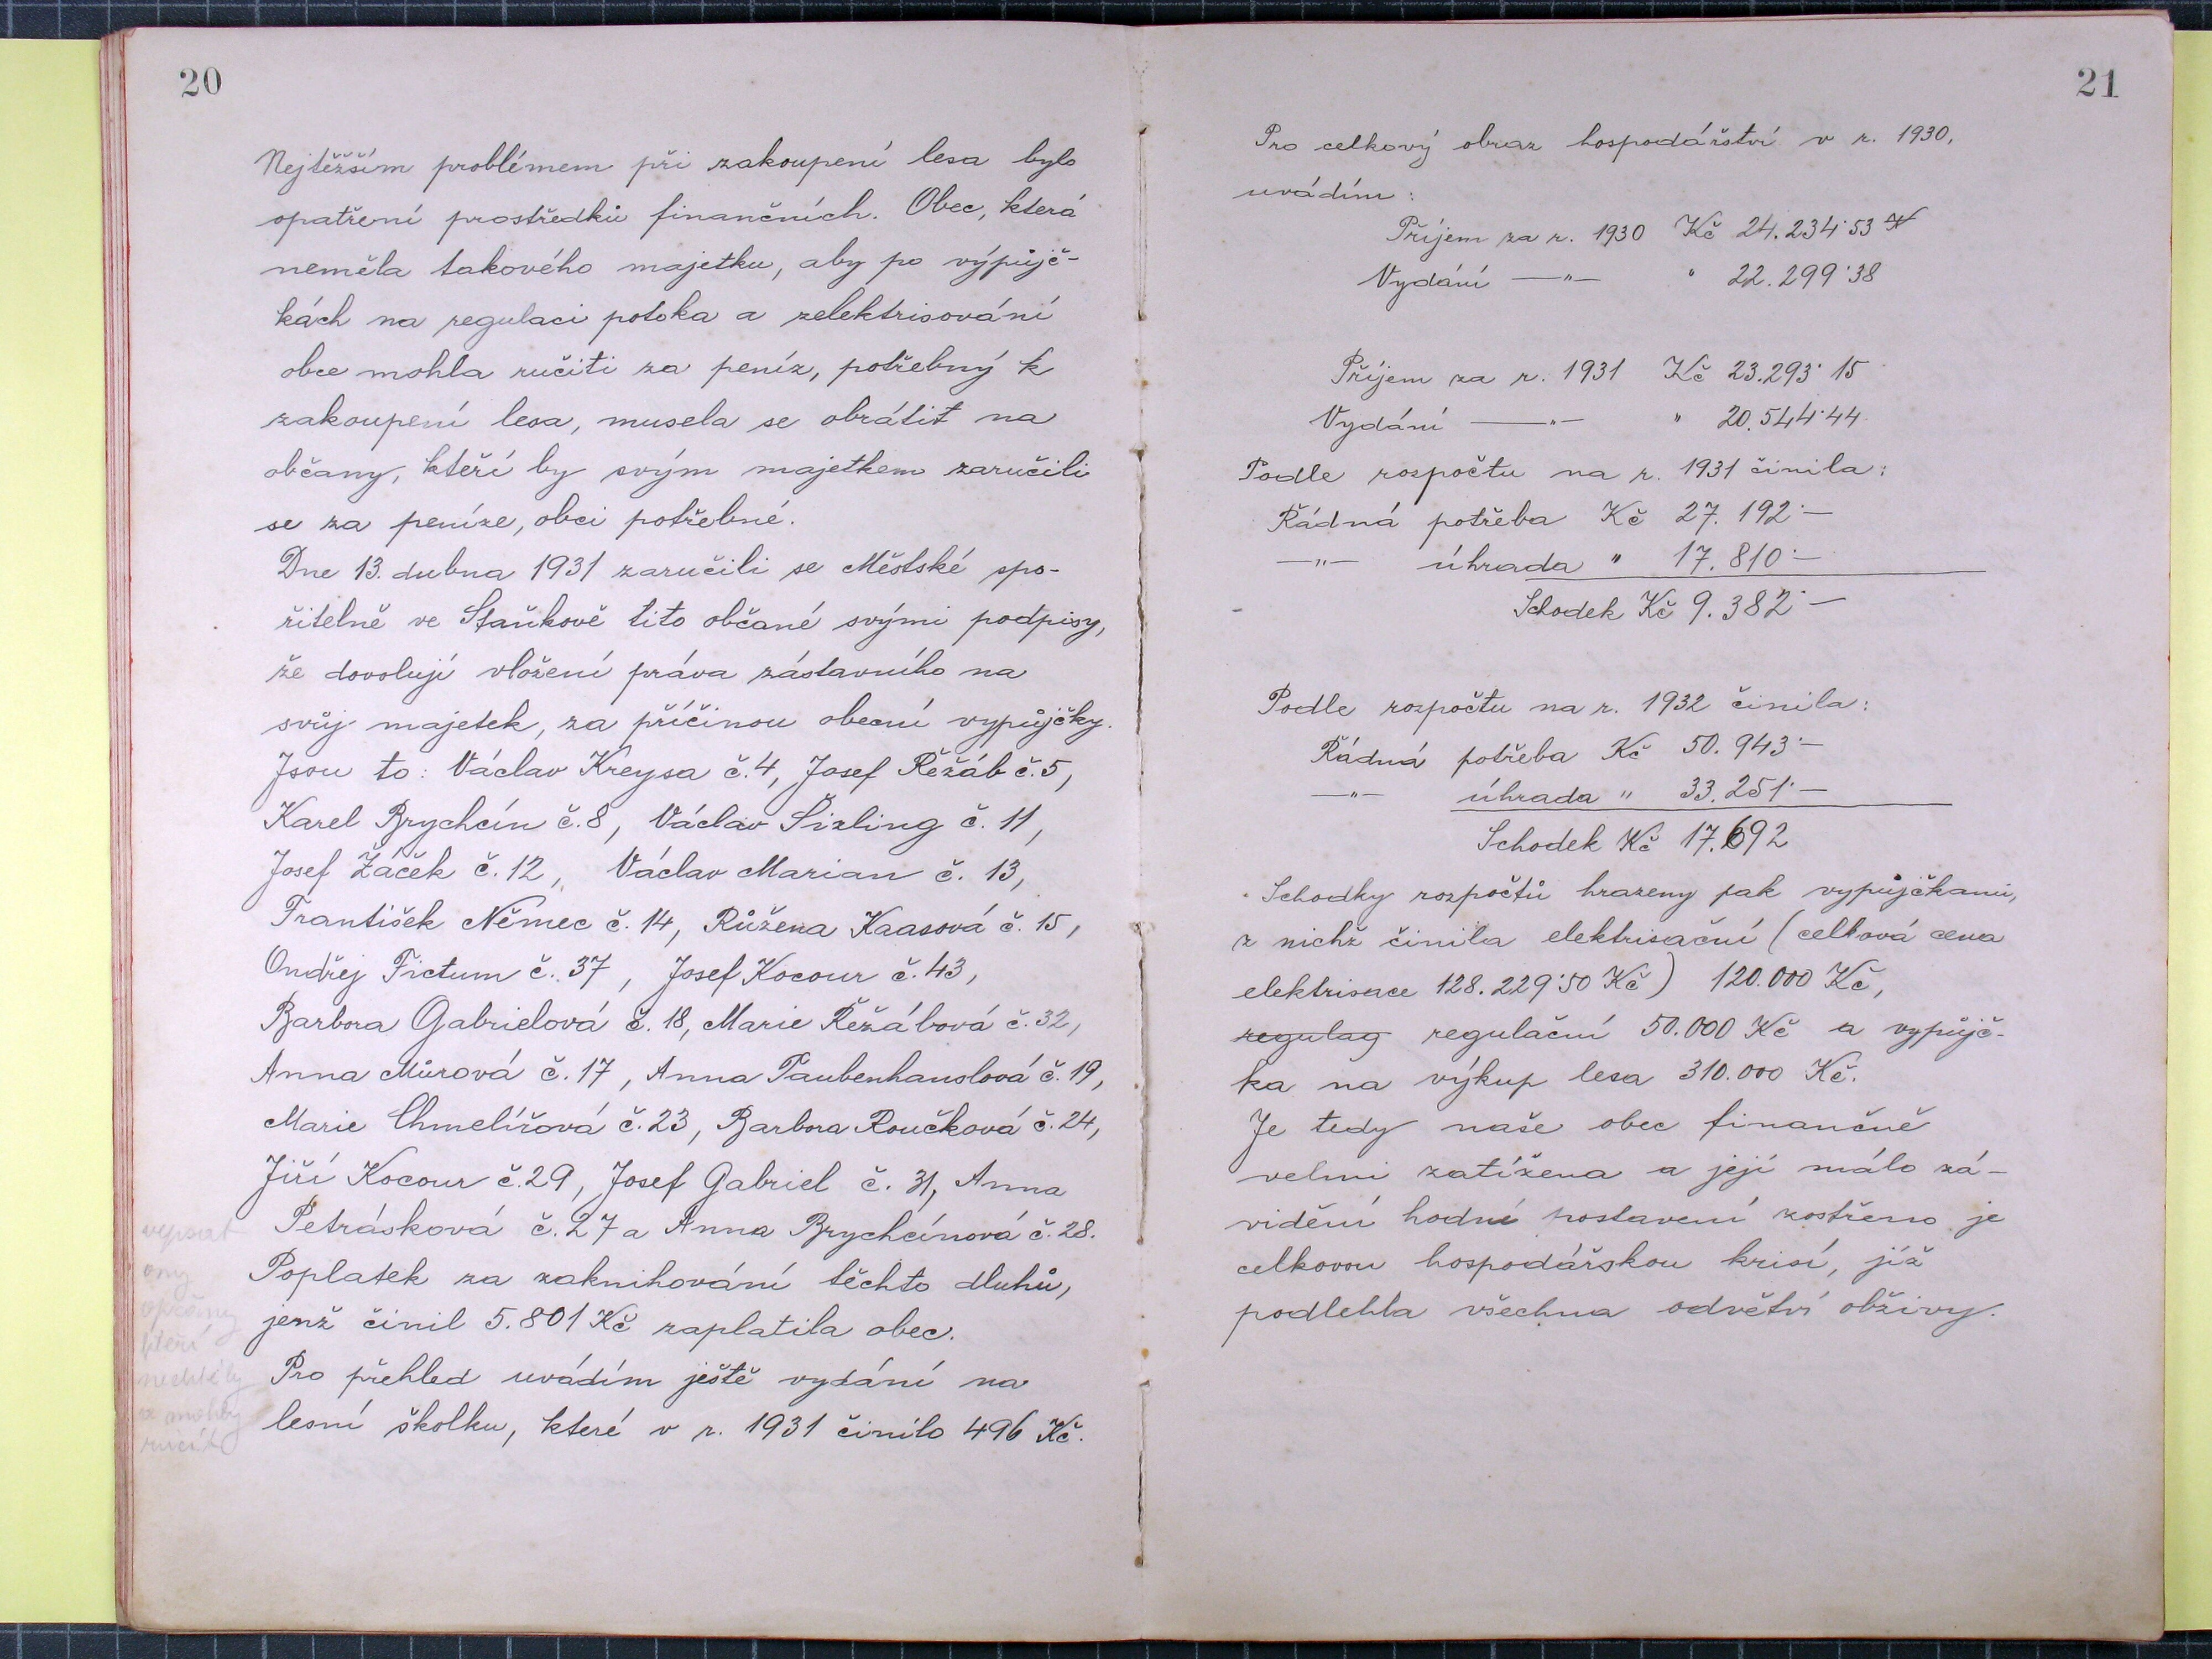 20
Nejtěžším problémem při zakoupení lesa bylo
opatření prostředků finančních. Obec, která
neměla takového majetku, aby po výpůjč-
kách na regulaci potoka a zelektrisování
obce mohla ručiti za peníz, potřebný k
zakoupení lesa, musela se obrátit na
občany, kteří by svým majetkem zaručili
se za peníze, obci potřebné.
Dne 13. dubna 1931 zaručili se Městské spo-
řitelně ve Staňkově tito občané svými podpisy,
že dovolují vložení práva zástavního na
svůj majetek, za příčinou obecní vypůjčky.
Jsou to: Václav Kreysa č. 4, Josef Řežáb č. 5,
Karel Brychcín č. 8, Václav Šizling č. 11,
Josef Žáček č. 12, Václav Marian č. 13,
František Němec č. 14, Růžena Kaasová č. 15,
Ondřej Fictum č. 37, Josef Kocour č. 43,
Barbora Gabrielová č. 18, Marie Řežábová č. 32,
Anna Můrová č. 17, Anna Taubenhanslová č. 19,
Marie Chmelířová č. 23, Barbora Roučková č. 24,
Jiří Kocour č. 29, Josef Gabriel č. 31, Anna
Petrásková č. 27 a Anna Brychcínová č. 28.
Poplatek za zaknihování těchto dluhů,
jenž činil 5.801 Kč zaplatila obec.
Pro přehled uvádím ještě vydání na
lesní školku, které v r. 1931 činilo 496 Kč.
vepsat
ony
občany
kteří
nechtěli
ručit
21
Pro celkový obraz hospodářství v r. 1930,
uvádím:
Příjem za r. 1930 Kč 24.234·53
Vydání —"— " 22.299·38
Příjem za r. 1931 Kč 23.293·15
Vydání —"— " 20.544·44
Podle rozpočtu na r. 1931 činila:
Řádná potřeba Kč 27.192·—
—"— úhrada " 17.810·—
Schodek Kč 9.382·—
Podle rozpočtu na r. 1932 činila:
Řádná potřeba Kč 50.943·—
—"— úhrada " 33.251·—
Schodek Kč 17.692
Schodky rozpočtů hrazeny pak vypůjčkami,
z nichž činila elektrisační (celková cena
elektrisace 128.229·50 Kč) 120.000 Kč,
regulag regulační 50.000 Kč a vypůjč-
ka na výkup lesa 310.000 Kč.
Je tedy naše obec finančně
velmi zatížena a její málo zá-
vidění hodné postavení zostřeno je
celkovou hospodářskou krisí, jíž
podlehla všechna odvětví obživy.